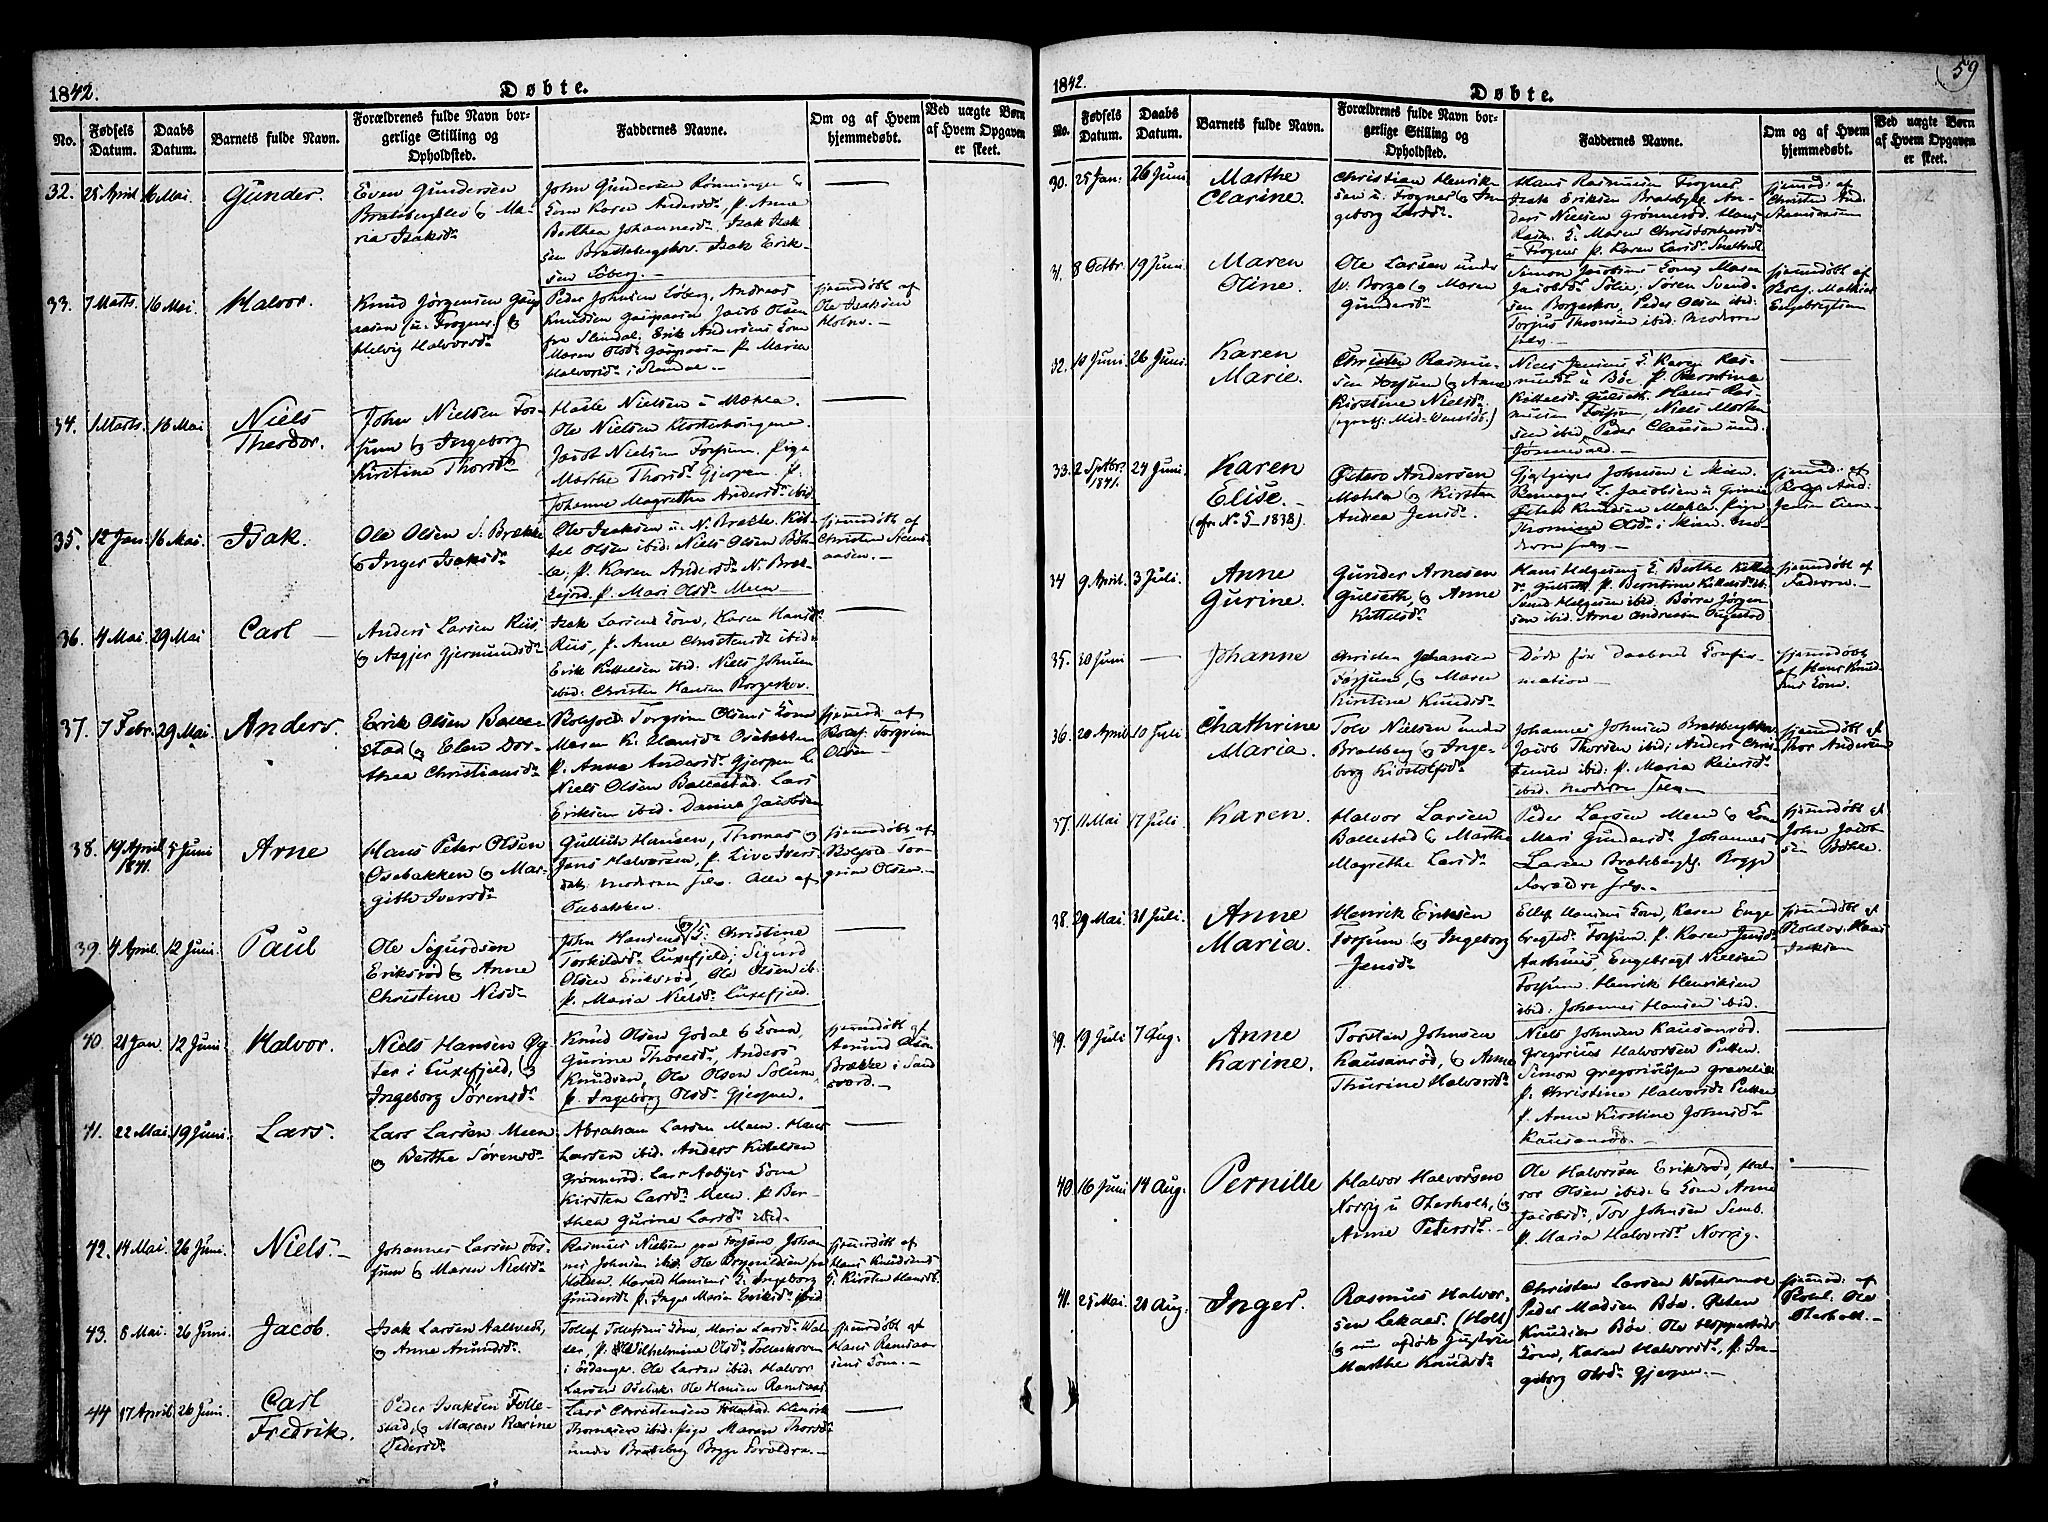 1842.
Døbte.
No.
Fødsels Datum.
Daabs Datum.
Barnets fulde Navn.
Forældrenes fulde Navn borgerlige Stilling og Opholdsted.
Faddernes Navne.
Om og af Hvem hjemmedøbt.
Ved uægte Børn af Hvem Opgaven er skeet.
32. 25 April 16 Mai. Gunder.
Even Gundersen
Bratsbergklev & Ma-
ria Isaksd.
John Gundersen Rønningen &
Kone Karen Andersd. p. Anne
Berthea Johannesd. Isak Isak-
sen Bratsbergskov. Isak Erik-
sen Løberg.
33. 7 Marts. 16 Mai. Halvor.
Knud Jørgensen
aasen (u. Frogner) &
Helvig Halvorsd.
Peder Johnsen Løberg, Andreas
Knudsen Jacob Olsen
fra Slemdal; Erik Andersens Kone
Maren Olsd. p. Maria
Halvorsd. i Slemdal.
hjemmedøbt af
Ole Isaksen
34. 1 Marts. 16 Mai Niels
Theodor.
John Nielsen Fos-
sum & Ingeborg
Kirstine Thorsd.
Nielsen u Mæhla.
Ole Nielsen
Jacob Nielsen Fossum. Pige
Marthe Thorsd. Gjerpen. P.
Johanne Magrethe Andersd. ibid.
35. 12 Jan. 16 Mai. Isak.
Ole Olsen S. Brække
& Inger Isaksd.
Ole Isaksen u. N. Brække. Kit-
tel Olsen ibid: Niels Olsen Bøh-
le. p. Karen Andersd. N. Bræk-
kejord. p. Mari Olsd. Meen
hjemmedøbt af
Christen Stens-
aasen.
36. 4 Mai. 29 Mai Carl
Anders Larsen Riis
& Aagjer Gjermundsd.
Isak Larsens Kone, Karen Hansd.
Riis, p. Anne Christensd. ibid.
Erik Kittelsen ibid. Niels Johnsen
ibid: Christen Hansen Borgeskov.
37. 7 Febr. 29 Mai. Anders.
Erik Olsen Balle-
stad & Elen Dor-
thea Christiansd.
Rolfsd. Torgrim Olsens Kone
Maren K. Hansd. Osebakken
p. Anne Andersd. Gjerpen L.
Niels Olsen Ballestad. Lars
Eriksen ibid. Daniel Jacobsen
hjemmd: af
Torgrim
Olsen
38. 19 April 1841. 5 Juni Arne
Hans Peter Olsen
Osebakken & Mar-
gith Iversd.
Gullich Hansen, Thomas &
Jens Halvorsen, p. Live Ivers-
datr. moderen selv. Alle af
Osebakken.
hjemmedøbt af
Tor-
grim Olsen.
39. 4 April. 12 Juni. Paul
Ole Sigurdsen
Eriksrød & Anne
Christine Nisd.
John Hansens Christine
Torkildsd. Luxefjeld; Sigurd
Olsen Eriksrød, Ole Olsen ib:
p. Maria Nielsd. Luxefjeld.
40. 21 Jan. 12 Juni Halvor.
Niels Hansen Øg-
ter i Luxefjeld, &
Ingeborg Sørensd.
Knud Olsen Godal & Kone
Gurine Thoresd., Anders
Knudsen, Ole Olsen Solum,
p. Ingeborg Olsd. Gjerpen.
hjemmedøbt af
Amund Olsen
Brække i Sand-
41. 22 Mai 19 Juni. Lars.
Lars Larsen Meen
& Berthe Sørensd.
Abraham Larsen Meen. Hans
Larsen ibid. Anders Kittelsen
Grønnerød. Lars Aabyes Kone
Kirsten Larsd. Meen. p. Ber-
thea Gurine Larsd. ibid.
42. 14 Mai 26 Juni. Niels.
Johannes Larsen Fos-
sum & Maren Nielsd.
Rasmus Nielsen paa Fossum Johan-
nes Johnsen ibid. Ole Brynildsen fra
Holden. Harald Hansens K. Ingeborg
Gundersd. p. Inger Maria Eriksd. ibid.
hjemmedøbt af
Hans Knudsens
K. Kirsten Hansd.
43. 8 Mai. 26 Juni Jacob.
Isak Larsen Aaltvedt,
& Anne Amundsd.
Tollef Tollefsens Kone, Maria Larsd. Val-
ler, p. Wilhelmine Olsd. Tollerskoven
i Eidanger. Ole Larsen ibid. Halvor
Larsen Osebak: Ole Hansen Ramsaas.
hjemmedøbt af
Hans Ramsaa-
sens Kone.
44 17 April. 26 Juni. Carl
Fredrik.
Peder Isaksen Folle-
stad, & Maren Karine
Pedersd.
Lars Christensen Follestad. Henrik
Thomesen ibid. pige Maren Thorsd.
under Bratsberg Begge Forældre.
1842.
Døbte.
59
No.
Fødsels Datum.
Daabs Datum.
Barnets fulde Navn.
Forældrenes fulde Navn borgerlige Stilling og Opholdsted.
Faddernes Navne.
Om og af Hvem hjemmedøbt.
Ved uægte Børn af Hvem Opgaven er skeet.
30. 25 Jan: 26 Juni Marthe
Clarine.
Christian Henrik-
sen u. Frogner & In-
geborg Larsd.
Hans Rasmussen Frogner
Isak Eriksen Bratsbgkl. An-
ders Nielsen Grønnerød. Hans
Rasm. K. Maren Christophersd.
Frogner p. Karen Larsd.
hjemmd: af
Christen And.
Stensaasen
31. 8 Octbr. 19 Juni. Maren
Oline.
Ole Larsen under
V. Borge & Maren
Gundersd.
Simon Jacobsens Kone Maren
Jacobsd. Sølie. Søren Svend-
sen Borgeskov. Peder Olsen ibid:
Torjus Thronsen ibid: Moderen
selv.
hjemmedøbt af
Mathias
Engebregtsen
32. 10 Juni. 26 Juni. Karen
Marie.
Christen Rasmu-
sen Fossum & Anne
Kirstine Nielsd.
Niels Jensens K. Karen Ras-
musd. u Bøe. p. Berntine
Kittelsd. Gulseth. Hans Ras-
musen Fossum, Niels Morten-
sen ibid. Peder Clausen und.
Jønnevald.
33. 2 Septbr. 1841. 24 Juni. Karen
Elise.
(cfr. No 5 1838).
Peter Andersen
Mæhla & Kirsten
Andrea Jensd.
Gjestgiver Johnsen i Skien.
Jacobsen u Grinie
Peter Knudsen Mæhla, pige
Thomine Olsd. i Skien. Mo-
deren selv.
hjemmd: af
And:
Jensen
34 9 April. 3 Juli. Anne
Gurine.
Gunder Arnesen
Gulseth, & Anne
Kittelsd.
Hans Helgesens K. Berthe Kittels-
d. Gulseth. p. Berntine Kittelsd. ib.
Svend Helgesen ibid. Børre Jørgen-
sen ibid. Arne Andersen
hjemmedøbt af
Faderen.
35. 30 Juni Johanne
Christen Johansen
Fossum, & Maren
Kirstine Knudsd.
Døde før Daabens Confir-
mation
hjemmedøbt
af Hans Knud-
sens Kone.
36. 20 April 10 Juli Chathrine
Maria.
Tolv Nielsen under
Bratsberg & Inge-
borg Kistolfsd.
Johannes Johnsen Bratsbergklev.
Jacob Thorsen ibid: Anders Chris-
tensen ibid: p. Maria Reiersd.
ibid. Moderen selv.
hjemmedøbt af
Thor Andersen
37. 11 Mai 17 Juli. Karen.
Halvor Larsen
Ballestad & Marthe
Magrethe Larsd.
Peder Larsen Meen & Kone
Mari Gundersd. Johannes
Larsen Bratsbergkl. Begge
Forældre selv.
hjemmedøbt af
John Jacob-
sen Bøhle.
38. 29 Mai. 31 Juli. Anne
Maria.
Henrik Eriksen
Fossum & Ingeborg
Jensd.
Ellef Hansens Kone, Karen Enge-
bregtsd. Fossum. p. Karen Jensd.
Engebregt Nielsen
Fossum. Henrik Henriksen
ibid. Johannes Hansen ibid.
hjemmedøbt af
Hans
Isaksen
39. 19 Juli 7 Aug. Anne
Karine.
Torsten Johnsen
Kausanrød, & Anne
Thurine Halvorsd.
Niels Johnsen Kausanrød.
Gregorius Halvorsen Putten.
Simon Gregoriussen Graveli
p. Christine Halvorsd. Putten
p. Anne Kirstine Johnsd.
Kausanrød.
40. 16 Juni 14 Aug. Pernille
Halvor Halvorsen
Norsig u Oterholt, &
Anne Petersd.
Ole Halvorsen Eriksrød, Hal-
vor Olsen ibid. & Kone Anne
Jacobsd., Tov Johnsen
p. Maria Halvorsd. Norsig.
41. 25 Mai. 21 Aug. Inger.
Rasmus Halvor-
sen Lekaas. (Holt)
& nu afdøde Hustru
Marthe Knudsd.
Christen Larsen
Peder Madsen Bøe. Peter
Knudsen Bøe. Ole
Kone, Karen Halvorsd., p. In-
geborg Olsd. Gjerpen.
hjemmd: af
Ole
Oterholt.